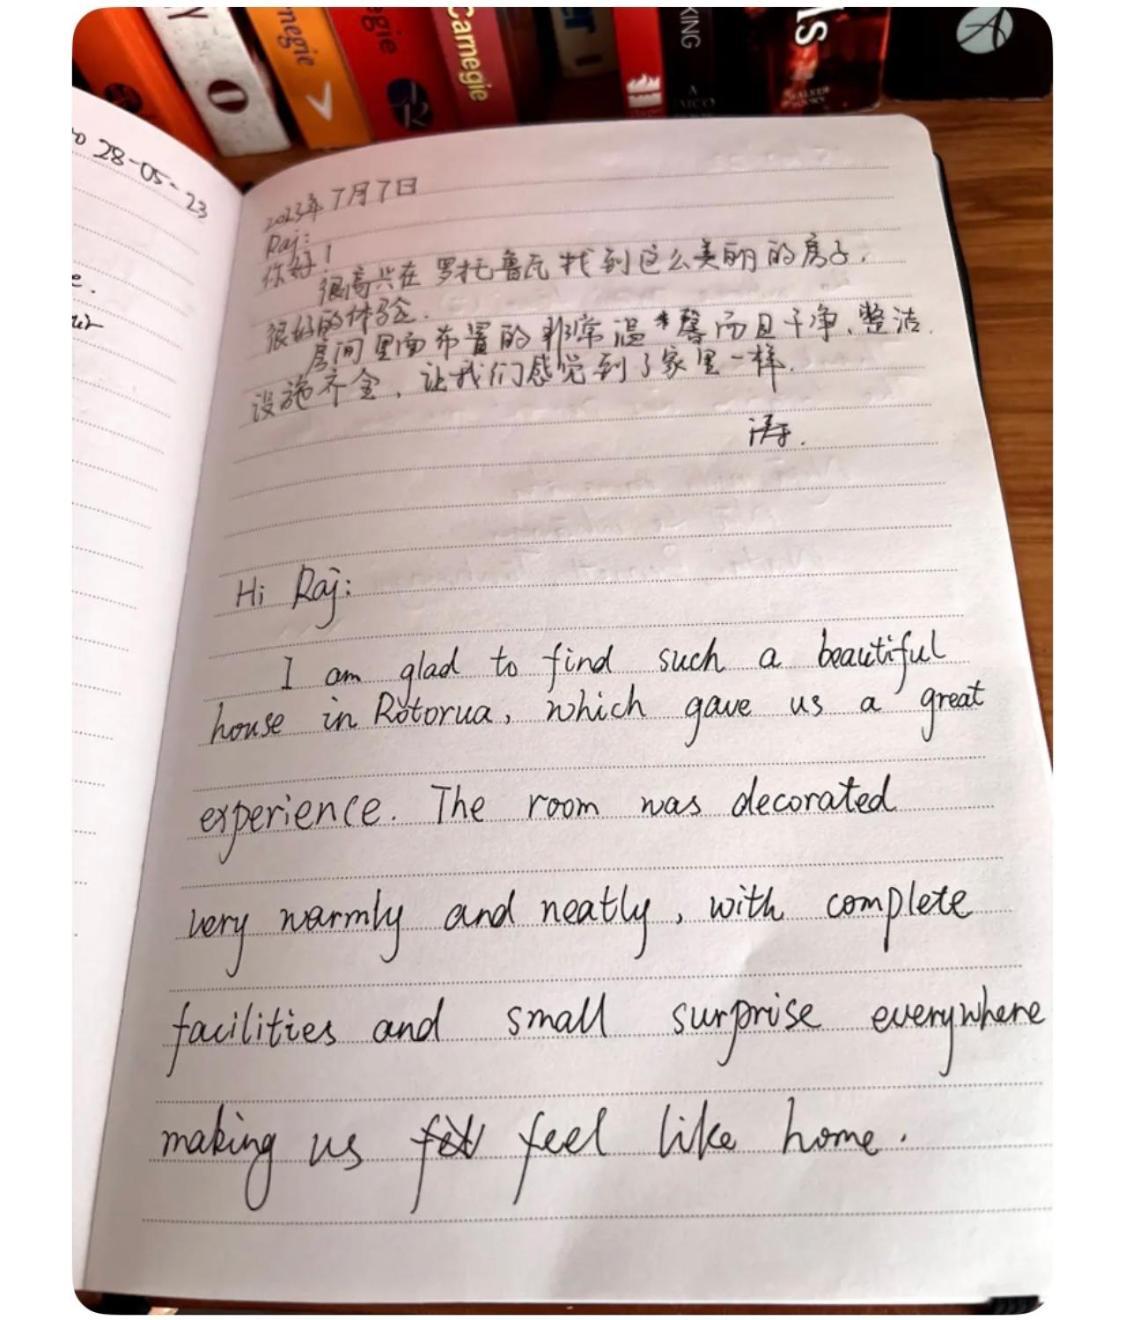 negie
V
O
egie
Carnegie
KING
A
ls
WALKER
BOOKS
A
28-05-23
e.
2023年7月7日
Raj:
你好!
很高兴在罗托鲁瓦找到这么美丽的房子.
很好的体验.
房间里面布置的非常温馨而且干净、整洁.
设施齐全,让我们感觉到了家里一样.
涛.
Hi Raj:
I am glad to find such a beautiful
house in Rotorua, which gave us a great
experience. The room was decorated
very warmly and neatly, with complete
facilities and small surprise everywhere
making us feel like home.